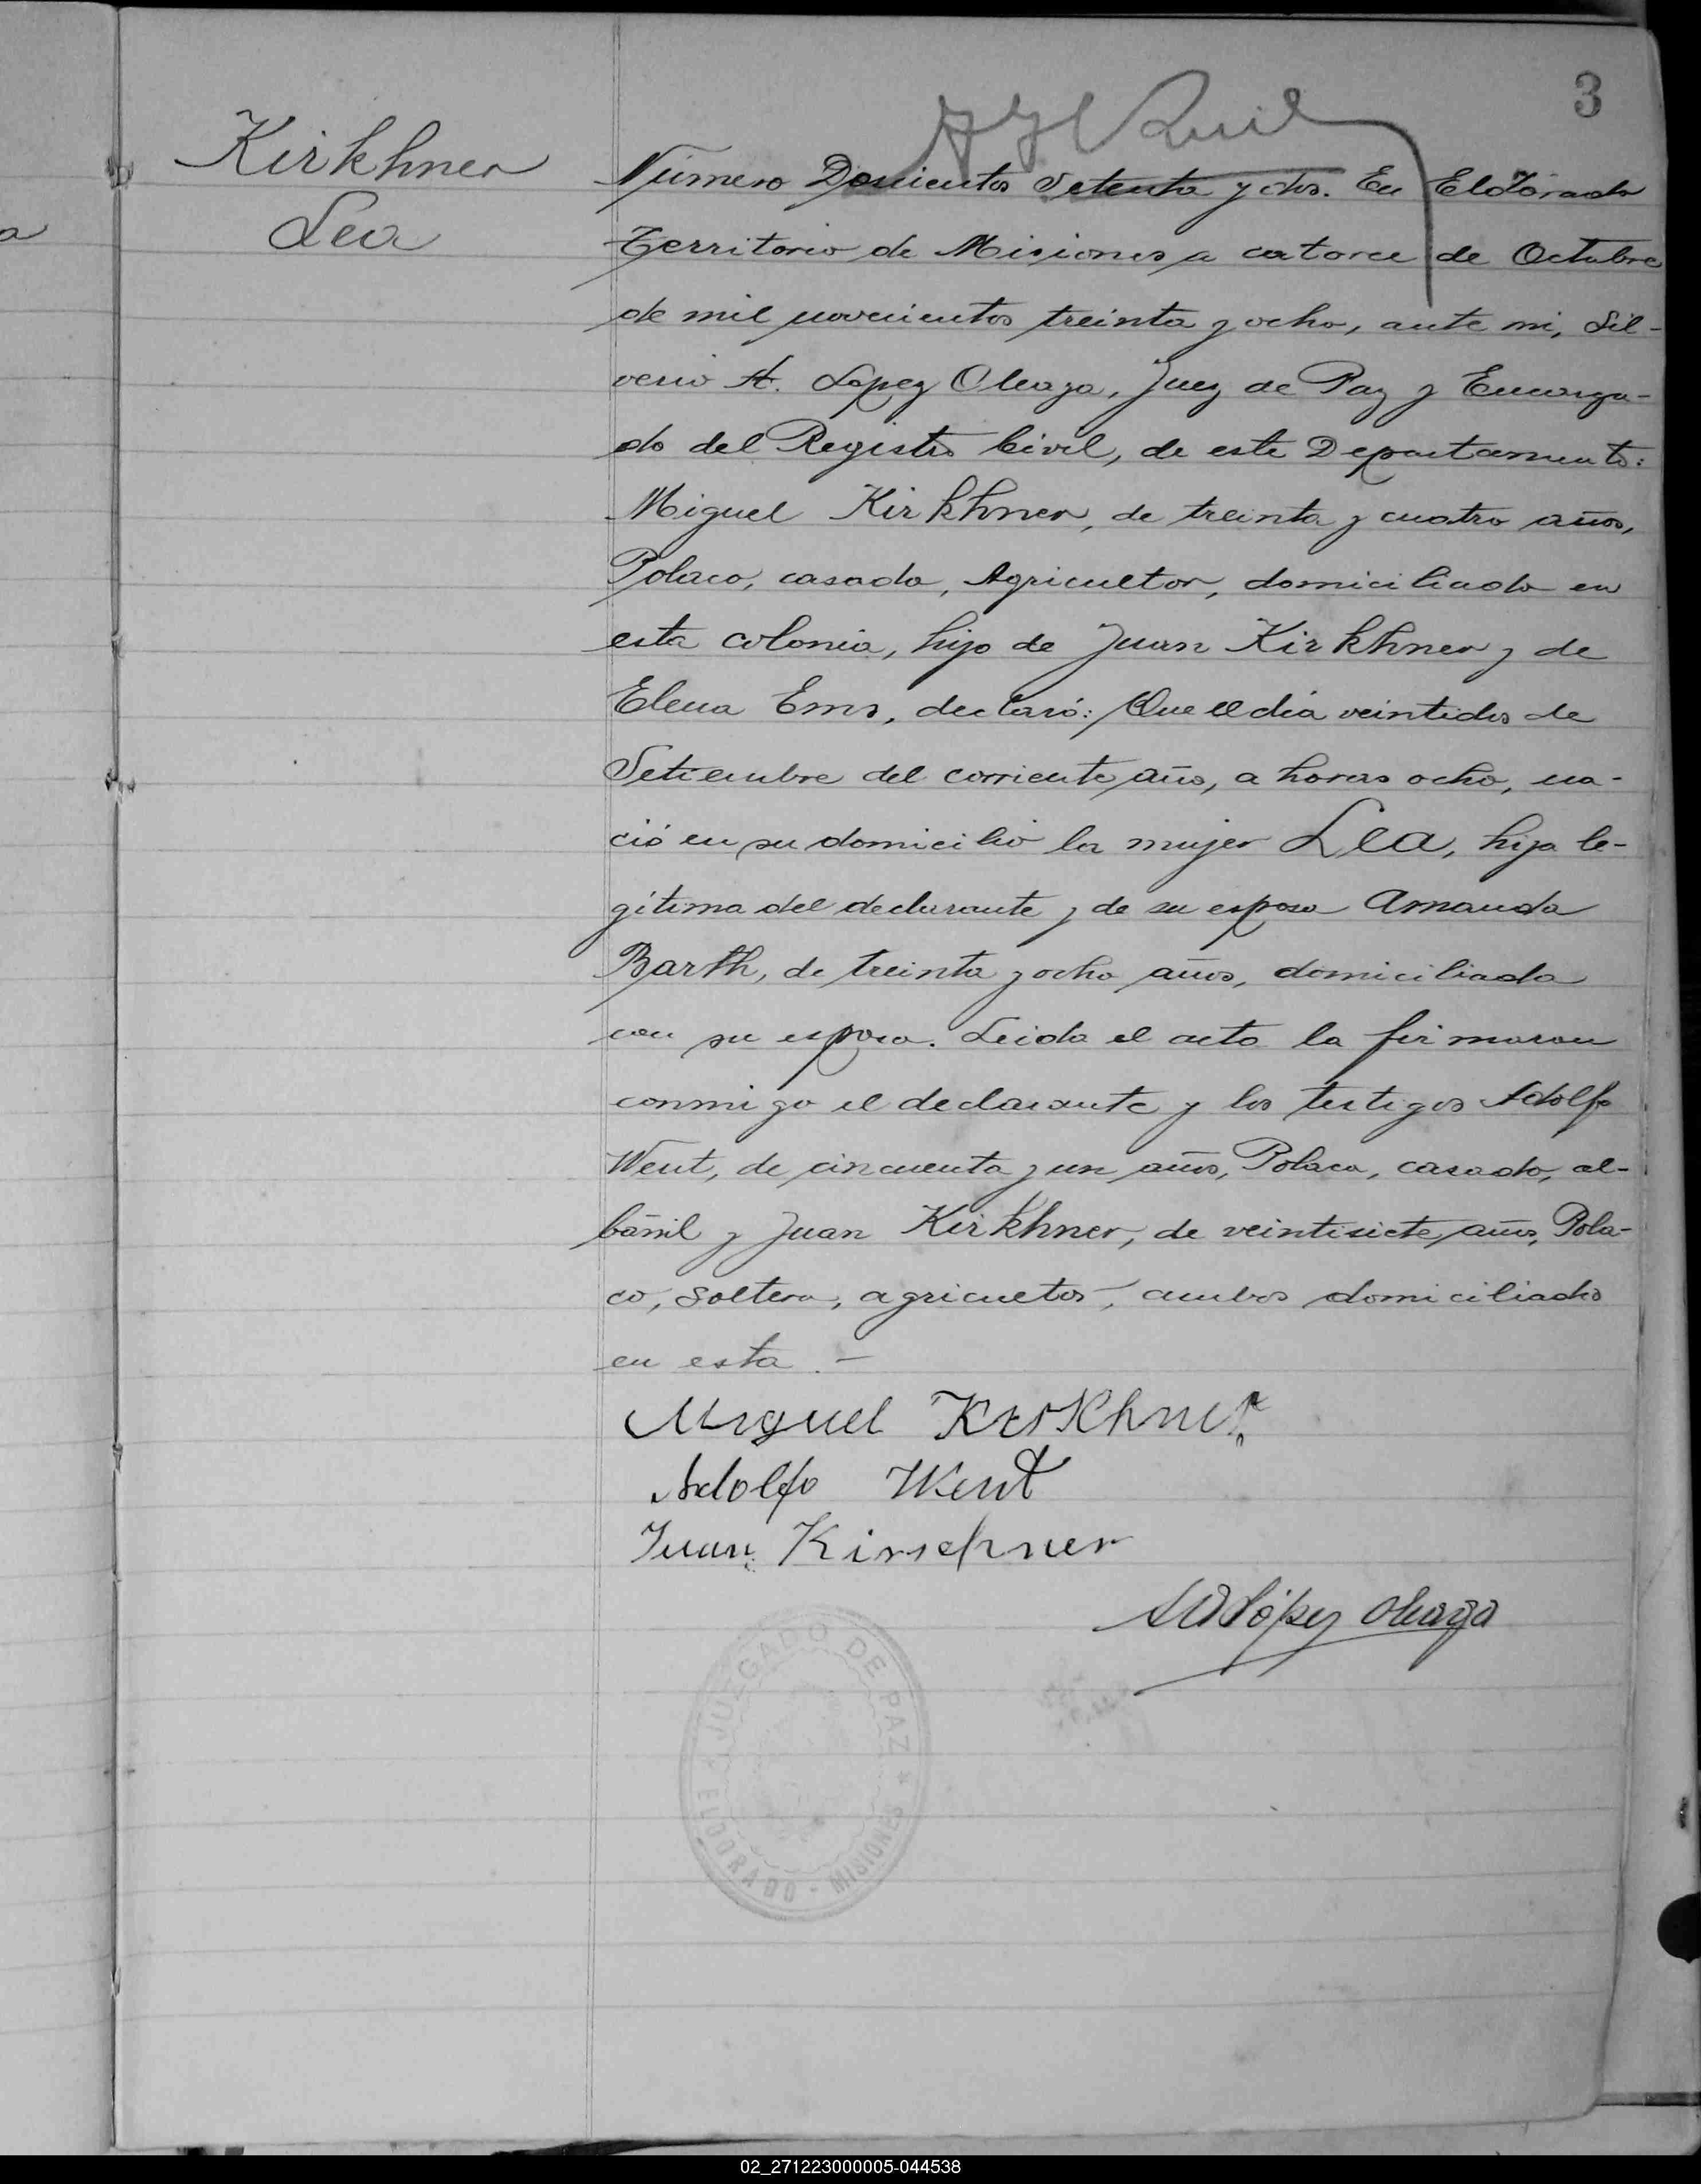 3
Kirkhner
Lea
Número Doscientos Setenta y dos. En Eldorado
Territorio de Misiones a catorce de Octubre
de mil novecientos treinta y ocho, ante mi, Sil-
verio A. Lopez Oleaga, Juez de Paz y Encarga-
do del Registro Civil, de este Departamento:
Miguel Kirkhner, de treinta y cuatro años,
Polaco, casado, Agricultor, domiciliado en
esta colonia, hijo de Juan Kirkhner y de
Elena Ems, declaró: Que el dia veintidos de
Setiembre del corriente año, a horas ocho, na-
ció en su domicilio la mujer Lea, hija le-
gitima del declarante y de su esposa Amanda
Barth, de treinta y ocho años, domiciliada
con su esposo. Leida el acta la firmaron
conmigo el declarante y los testigos Adolfo
Went, de cincuenta y un años, Polaco, casado, al-
bañil y Juan Kirkhner, de veintisiete años, Pola-
co, soltero, agricultor, ambos domiciliados
en esta.-
Miguel Kirkhner
Adolfo Went
Juan Kirschner
SALópez Oleaga
JUZGADO DE PAZ * ELDORADO - MISIONES
02_271223000005-044538